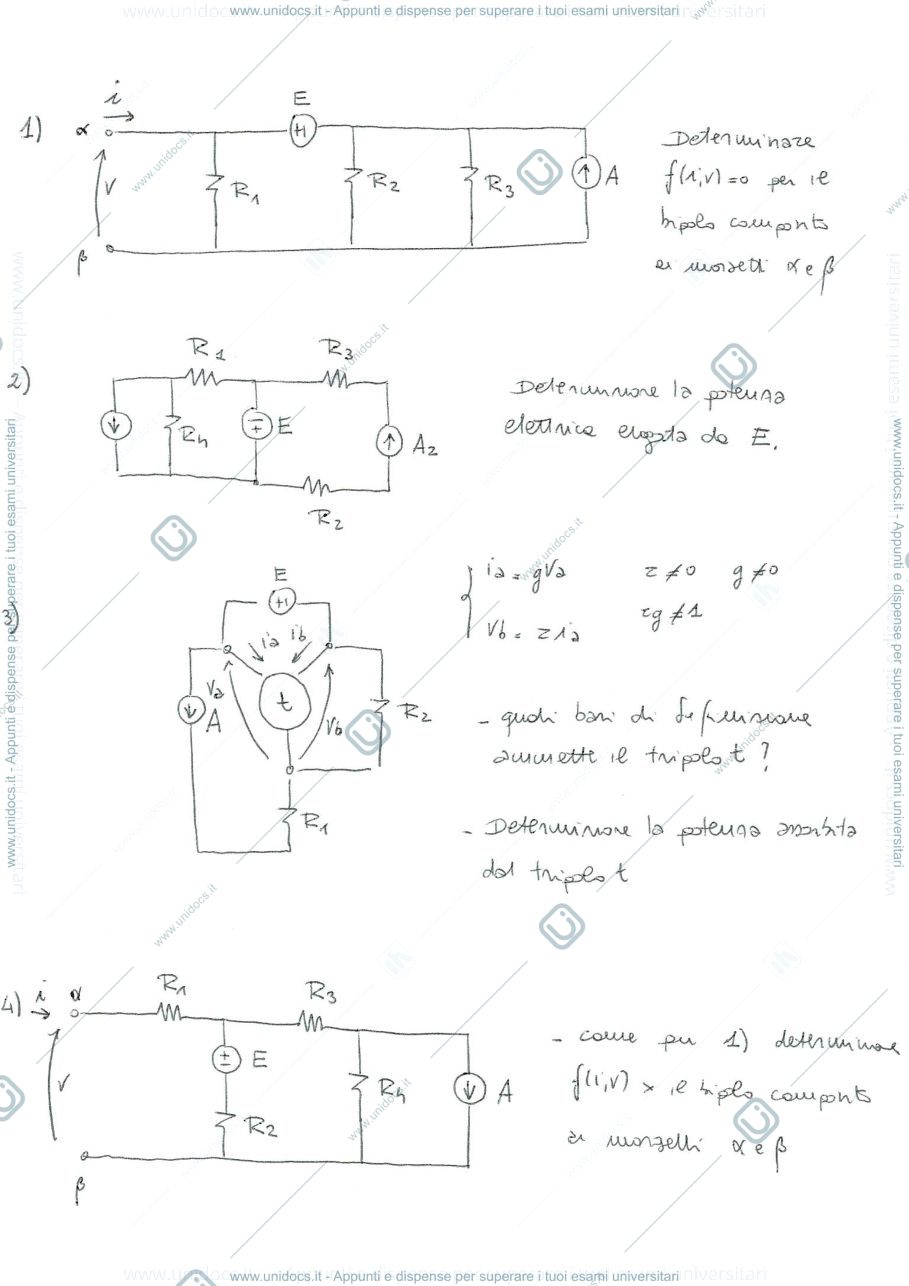 www.unidocs.it - Appunti e dispense per superare i tuoi esami universitari
1)
i
α
V
β
R1
E
R2
R3
A
Determinare
f(i,v)=0 per il
bipolo composto
ai morsetti α e β
2)
R1
R3
R4
E
A2
R2
Determinare la potenza
elettrica erogata da E.
3)
E
ia
ib
Va
A
t
Vb
R2
R1
ia = gVa
Vb = ria
r ≠ 0
g ≠ 0
rg ≠ 1
- quali basi di definizione
ammette il tripolo t ?
- Determinare la potenza assorbita
dal tripolo t
4)
i
α
V
β
R1
R3
E
R2
R4
A
- come per 1) determinare
f(i,v) x il bipolo composto
ai morsetti α e β
www.unidocs.it - Appunti e dispense per superare i tuoi esami universitari
www.unidocs.it - Appunti e dispense per superare i tuoi esami universitari
www.unidocs.it - Appunti e dispense per superare i tuoi esami universitari